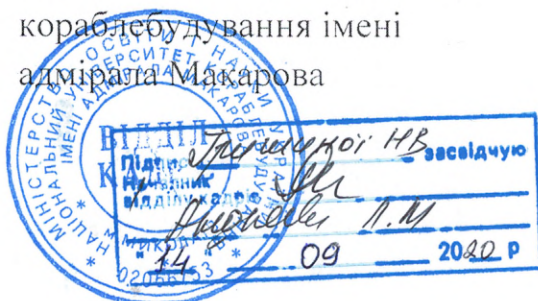 кораблебудування імені
адмірала Макарова
МІНІСТЕРСТВО ОСВІТИ І НАУКИ УКРАЇНИ
НАЦІОНАЛЬНИЙ УНІВЕРСИТЕТ КОРАБЛЕБУДУВАННЯ
ІМЕНІ АДМІРАЛА МАКАРОВА
ВІДДІЛ
КАДРІВ
М. МИКОЛАЇВ
02066753
Підпис НВ засвідчую
Начальник
відділу кадрів
Л.М
"14" 09 2020 р